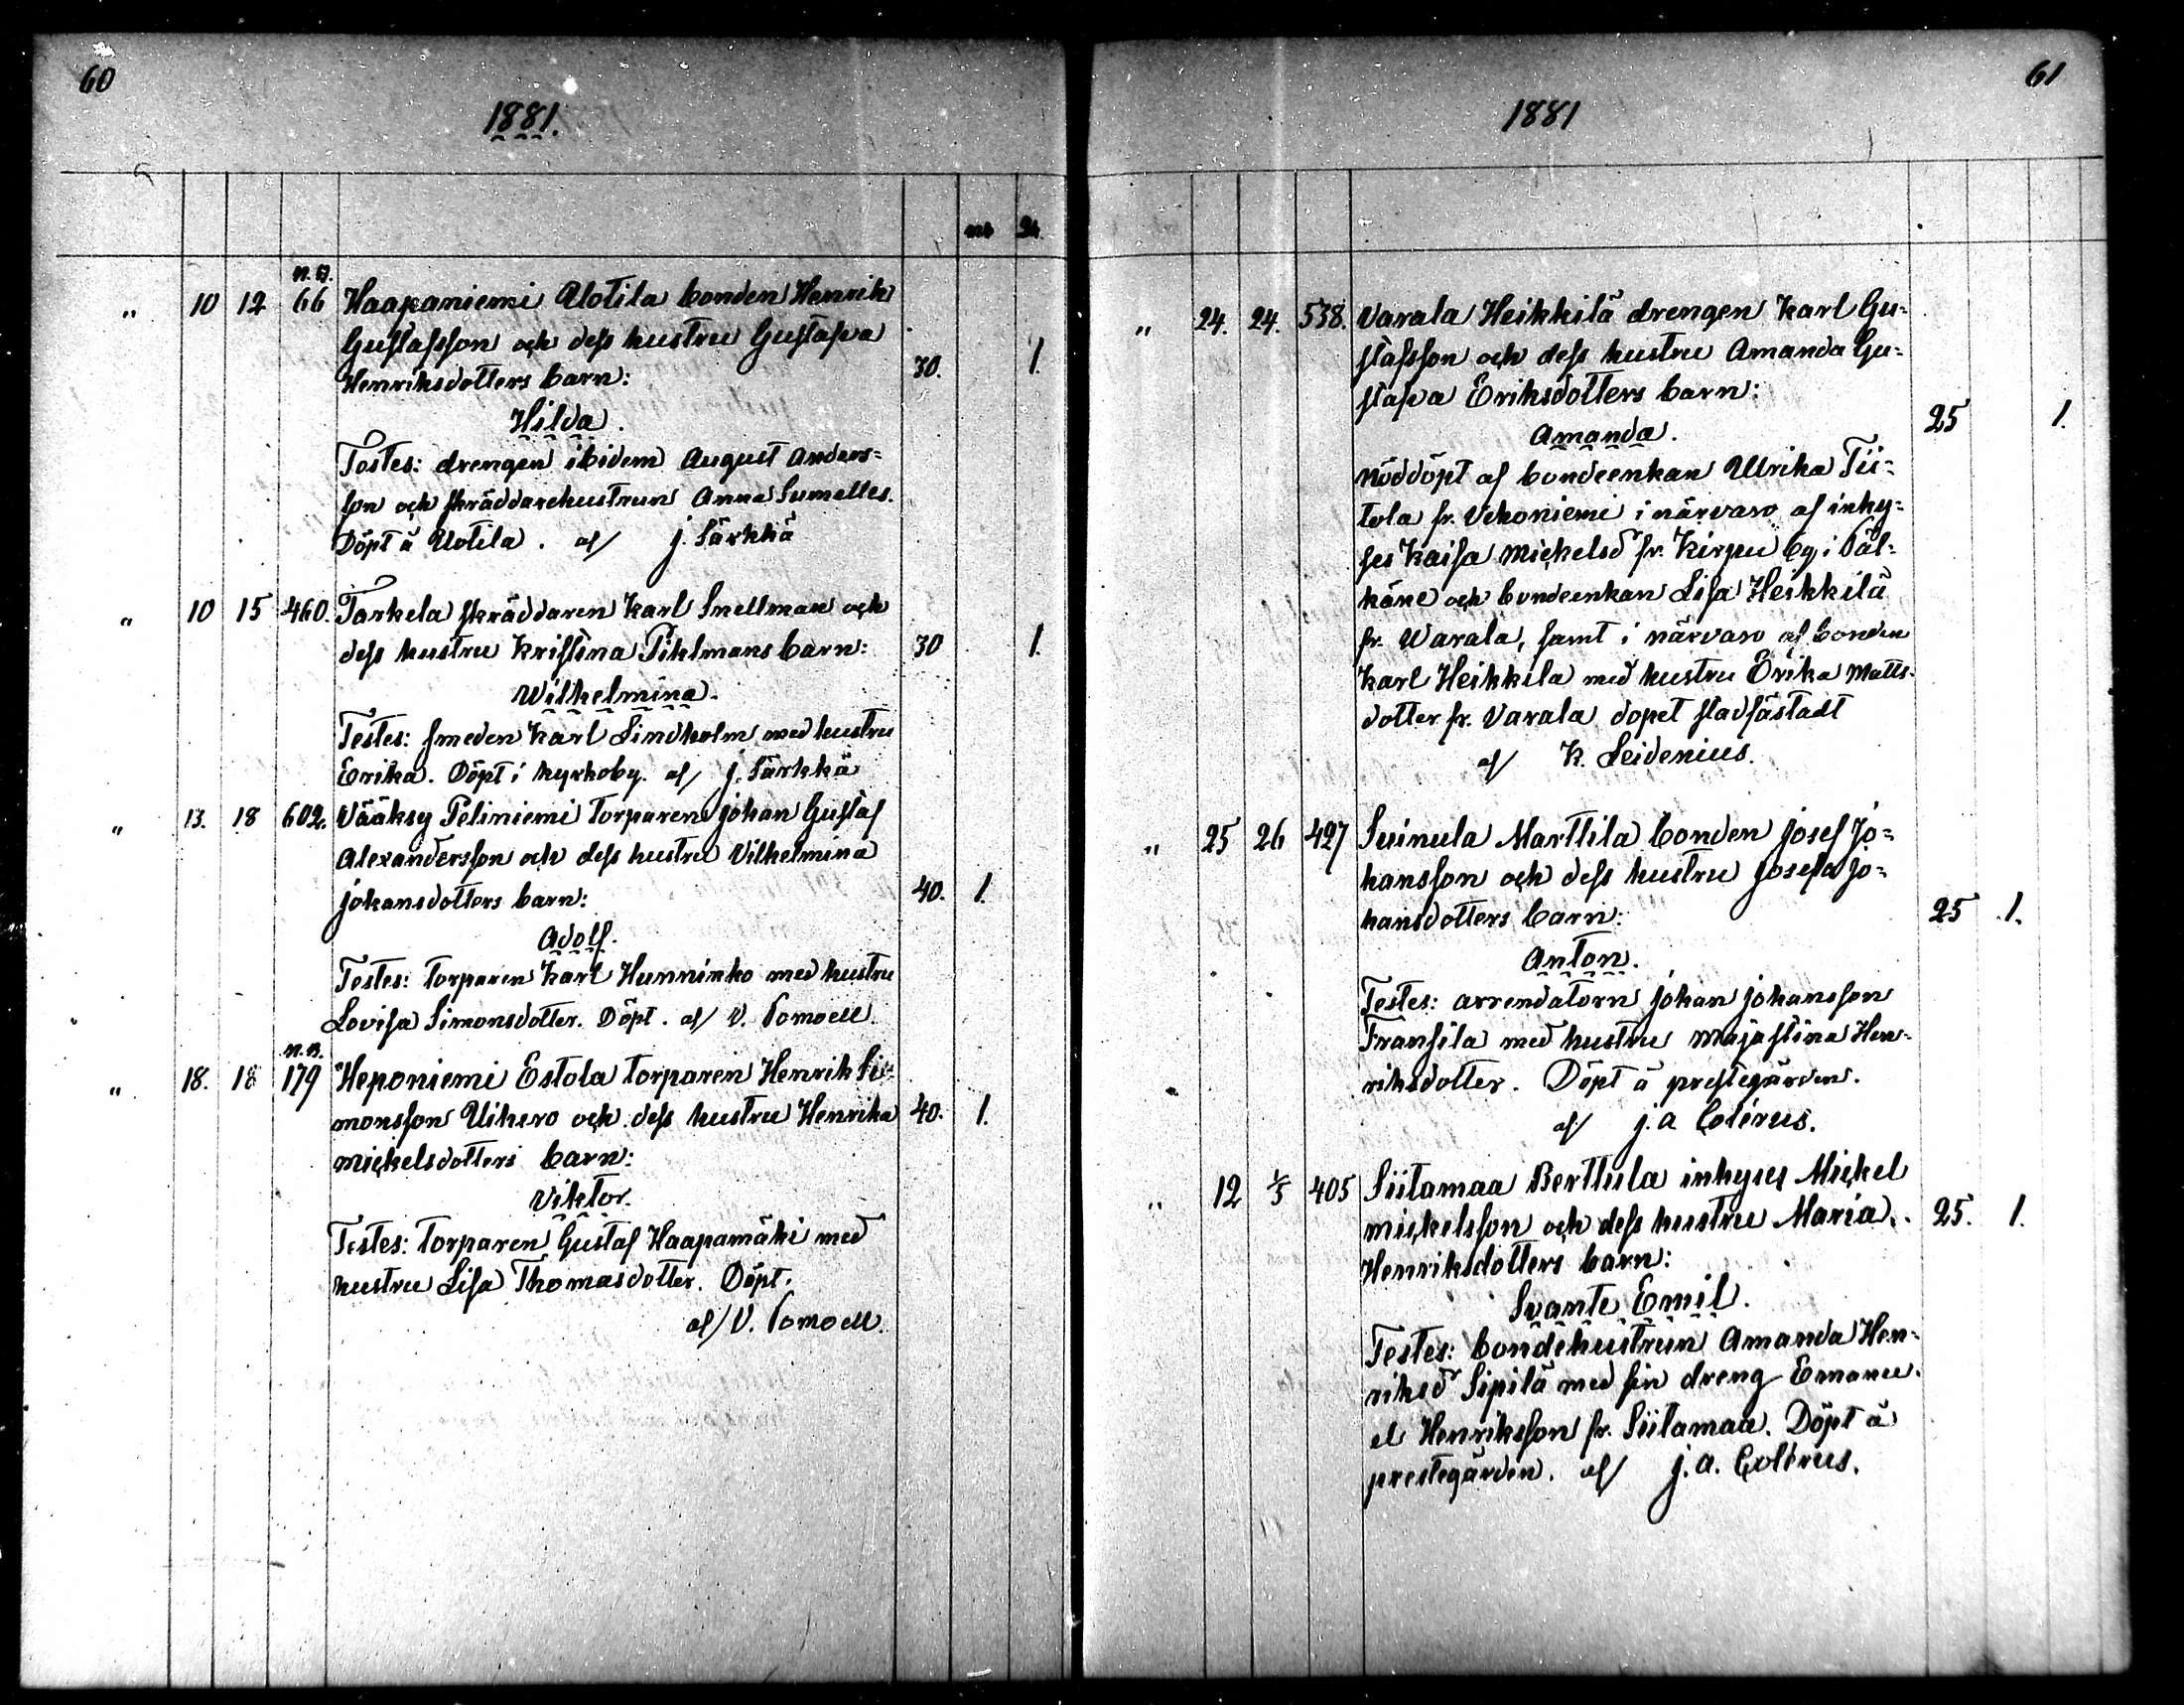 60
1881.
mk Qk.
n. 17.
" 10 12 66 Haapaniemi Uotila bonden Henrik
Gustafsson och dess hustru Gustafva
Henriksdotters barn: 30. 1.
Hilda.
Testes: drengen ibidem August Anders=
son och skräddarehustrun Anna Sumelles.
Döpt å Uotila. af/ J. Särkkä
" 10 15 460. Tarkela skräddaren Karl Snellman och
dess hustru Kristina Pihlmans barn: 30 1.
Wilhelmina.
Testes: smeden Karl Lindholm med hustru
Erika. Döpt i kyrkoby. af/ J. Särkkä
" 13. 18 602. Vääksy Peliniemi torparen Johan Gustaf
Alexandersson och dess hustru Vilhelmina
Johansdotters barn: 40. 1.
Adolf.
Testes: torparen Karl Hunninko med hustru
Lovisa Simonsdotter. Döpt. af/ V. Pomoell.
n. 13.
" 18. 18 179 Heponiemi Estola torparen Henrik Si=
monsson Uihero och dess hustru Henrika 40. 1.
Mickelsdotters barn:
Viktor.
Testes: torparen Gustaf Haapamäki med
hustru Lisa Thomasdotter. Döpt.
af/ V. Pomoell.
61
1881
" 24. 24. 538. Varala Heikkilä drengen Karl Gu=
stafsson och dess hustru Amanda Gu=
stafva Eriksdotters barn:
Amanda. 25 1.
nöddöpt af bondeenkan Ulrika Tii=
tola fr. Vehoniemi i närvaro af inhy=
ses Kaisa Mickelsd fr. Kirpu by i Päl=
käne och bondeenkan Lisa Heikkilä
fr. Warala, samt i närvaro af bonden
Karl Heikkila med hustru Erika Matts-
dotter fr. Varala dopet stadfästadt
af/ K. Leidenius.
" 25 26 427 Suinula Marttila bonden Josef Jo=
hansson och dess hustru Josefa Jo=
hansdotters barn: 25 1.
Anton.
Testes: arrendatorn Johan Johansson
Fransila med hustru Maja Stina Hen-
riksdotter. Döpt å prestegården.
af/ J. A. Colérus.
" 12 1/5 405 Siitamaa Berttula inhyses Mickel
Mickelsson och dess hustru Maria 25. 1.
Henriksdotters barn:
Svante Emil.
Testes: bondehustrun Amanda Hen-
riksd Sipilä med sin dreng Emanu-
el Henriksson fr. Siitamaa. Döpt å
prestegården. af/ J. A. Colérus.